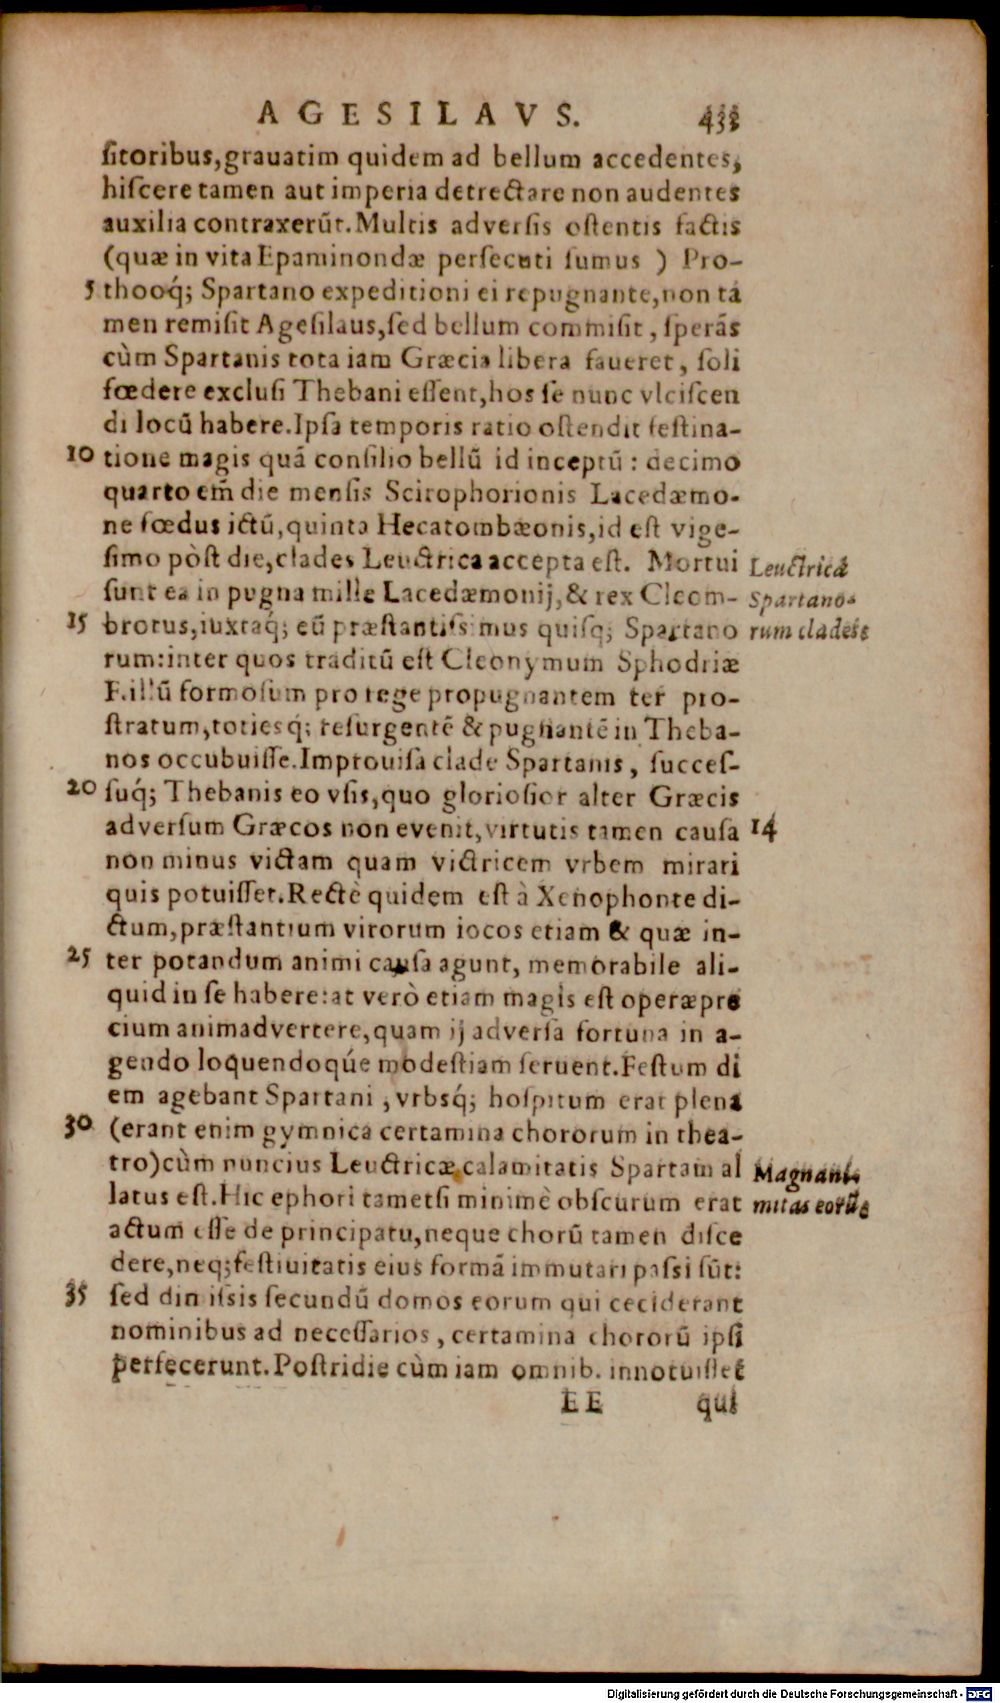 AGESILAVS. 433
sitoribus, grauatim quidem ad bellum accedentes,
hiscere tamen aut imperia detrectare non audentes
auxilia contraxerūt. Multis adversis ostentis factis
(quæ in vita Epaminondæ persecuti sumus) Pro-
5 thooq́; Spartano expeditioni ei repugnante, non ta
men remisit Agesilaus, sed bellum commisit, sperās
cùm Spartanis tota iam Græcia libera faueret, soli
fœdere exclusi Thebani essent, hos se nunc vlciscen
di locū habere. Ipsa temporis ratio ostendit festina-
10 tione magis quā consilio bellū id inceptū: decimo
quarto em̄ die mensis Scirophorionis Lacedæmo-
ne fœdus ictū, quinta Hecatombæonis, id est vige-
simo pòst die, clades Leuctrica accepta est. Mortui Leuctrica
sunt ea in pugna mille Lacedæmonij, & rex Cleom- Spartano-
15 brotus, iuxtaq́; eū præstantissimus quisq; Spartano rum clades
rum: inter quos traditū est Cleonymum Sphodriæ
F. illū formosum pro rege propugnantem ter pro-
stratum, totiesq́; resurgentē & pugnantē in Theba-
nos occubuisse. Improuisa clade Spartanis, succes-
20 suq́; Thebanis eo vsis, quo gloriosior alter Græcis
adversum Græcos non evenit, virtutis tamen causa 14
non minus victam quam victricem vrbem mirari
quis potuisset. Rectè quidem est à Xenophonte di-
ctum, præstantium virorum iocos etiam & quæ in-
25 ter potandum animi causa agunt, memorabile ali-
quid in se habere: at verò etiam magis est operæpre
cium animadvertere, quam ij adversa fortuna in a-
gendo loquendoqúe modestiam seruent. Festum di
em agebant Spartani, vrbsq́; hospitum erat plena
30 (erant enim gymnica certamina chororum in thea-
tro) cùm nuncius Leuctricæ calamitatis Spartam al Magnani-
latus est. Hic ephori tametsi minimè obscurum erat mitas eorū
actum esse de principatu, neque chorū tamen disce
dere, neq; festiuitatis eius formā immutari passi sūt:
35 sed din issis secundū domos eorum qui ceciderant
nominibus ad necessarios, certamina chororū ipsi
perfecerunt. Postridie cùm iam omnib. innotuisset
EE qui
Digitalisierung gefördert durch die Deutsche Forschungsgemeinschaft - DFG